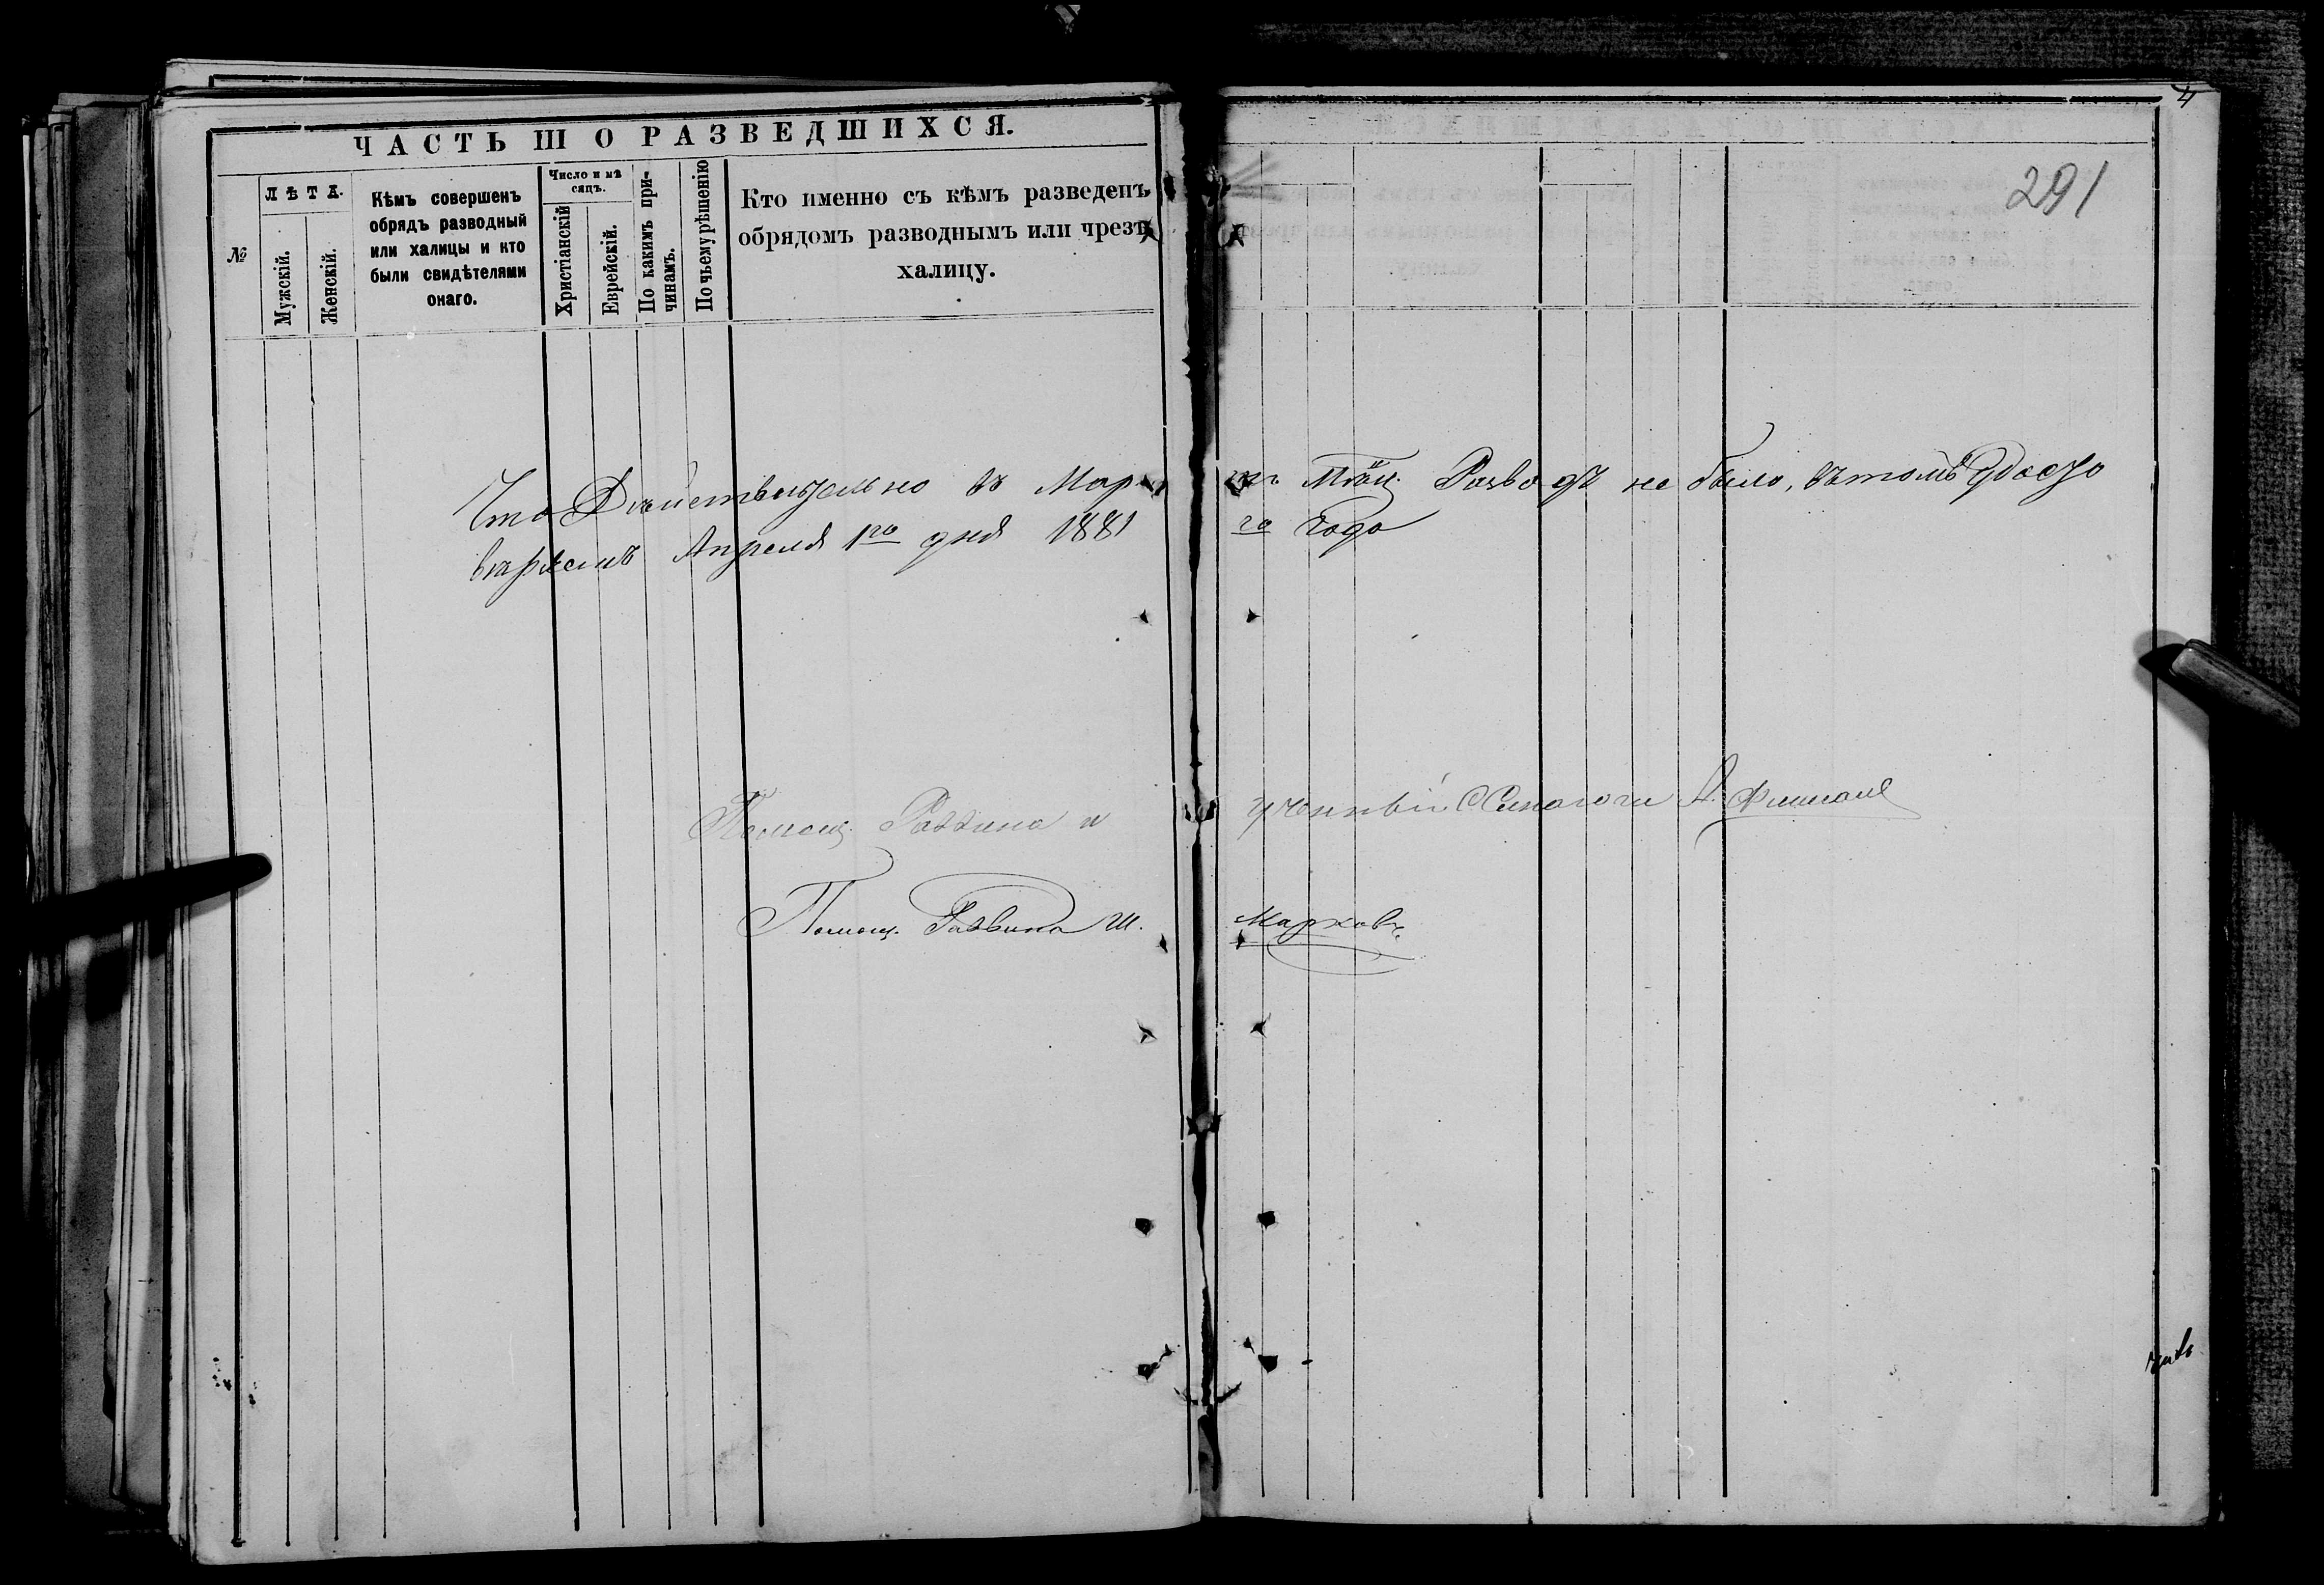 ЧАСТЬ III О РАЗВЕДШИХСЯ.
№
ЛѢТА.
Мужскій.
Женскій.
Кѣмъ совершенъ
обрядъ разводный
или халицы и кто
были свидѣтелями
онаго.
Число и мѣ
сяцъ.
Христіанскій
Еврейскій.
По какимъ при-
чинамъ.
По чьему рѣшенію
Кто именно съ кѣмъ разведенъ
обрядомъ разводнымъ или чрезъ
халицу.
4
291
Что Дѣйствительно въ Мар- тѣ Мѣц. Разводъ не было, въ томъ Удосто
вѣряемъ Апреля 1го дня 1881 го Года
Помощ. Раввина и ученный Синагоги А. Фишманъ
Помощ. Раввина Ш. Марковъ